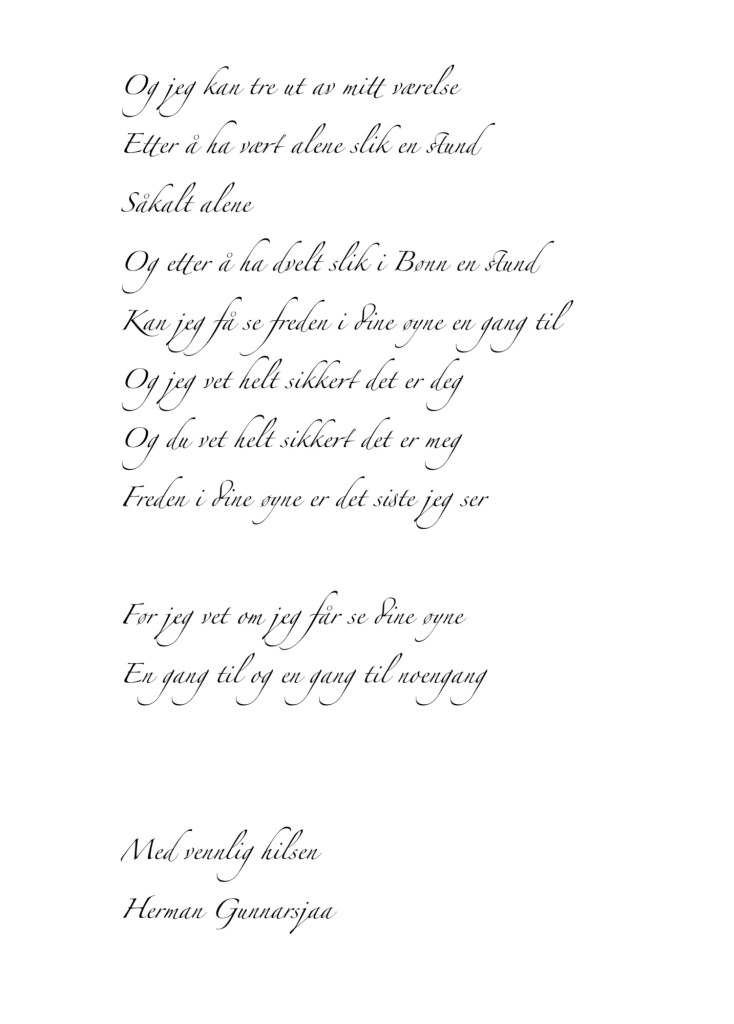 Og jeg kan tre ut av mitt værelse
Etter å ha vært alene slik en stund
Såkalt alene
Og etter å ha dvelt slik i Bønn en stund
Kan jeg få se freden i dine øyne en gang til
Og jeg vet helt sikkert det er deg
Og du vet helt sikkert det er meg
Freden i dine øyne er det siste jeg ser
Før jeg vet om jeg får se dine øyne
En gang til og en gang til noengang
Med vennlig hilsen
Herman Gunnarsjaa